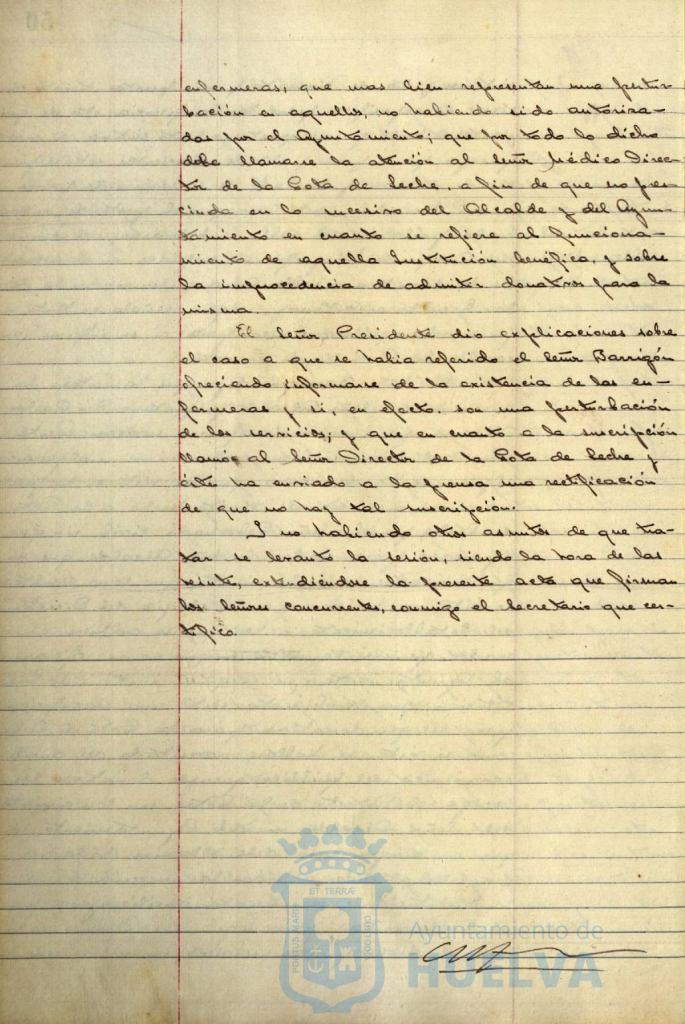 enfermeras, que mas bien representan una pertur-
bación en aquellos, no habiendo sido autoriza-
das por el Ayuntamiento; que por todo lo dicho
debe llamarse la atención al Señor Médico Direc-
tor de la Gota de Leche, a fin de que no pres-
cinda en lo sucesivo del Alcalde y del Ayun-
tamiento en cuanto se refiere al funciona-
miento de aquella Institución benéfica, y sobre
la improcedencia de admitir donativos para la
misma.
El Señor Presidente dio explicaciones sobre
el caso a que se habia referido el Señor Barrigón
ofreciendo informarse de la existencia de las en-
fermeras y si, en efecto, son una perturbación
de los servicios; y que en cuanto a la suscripción
llamó al Señor Director de la Gota de Leche y
éste ha enviado a la prensa una rectificación
de que no hay tal suscripción.
Y no habiendo otros asuntos de que tra-
tar se levanto la sesión, siendo la hora de las
veinte, extendiéndose la presente acta que firman
los Señores concurrentes, conmigo el Secretario que cer-
tifico.
ET TERRÆ
PORTUS MARIS
CUSTODIA
Ayuntamiento de
HUELVA